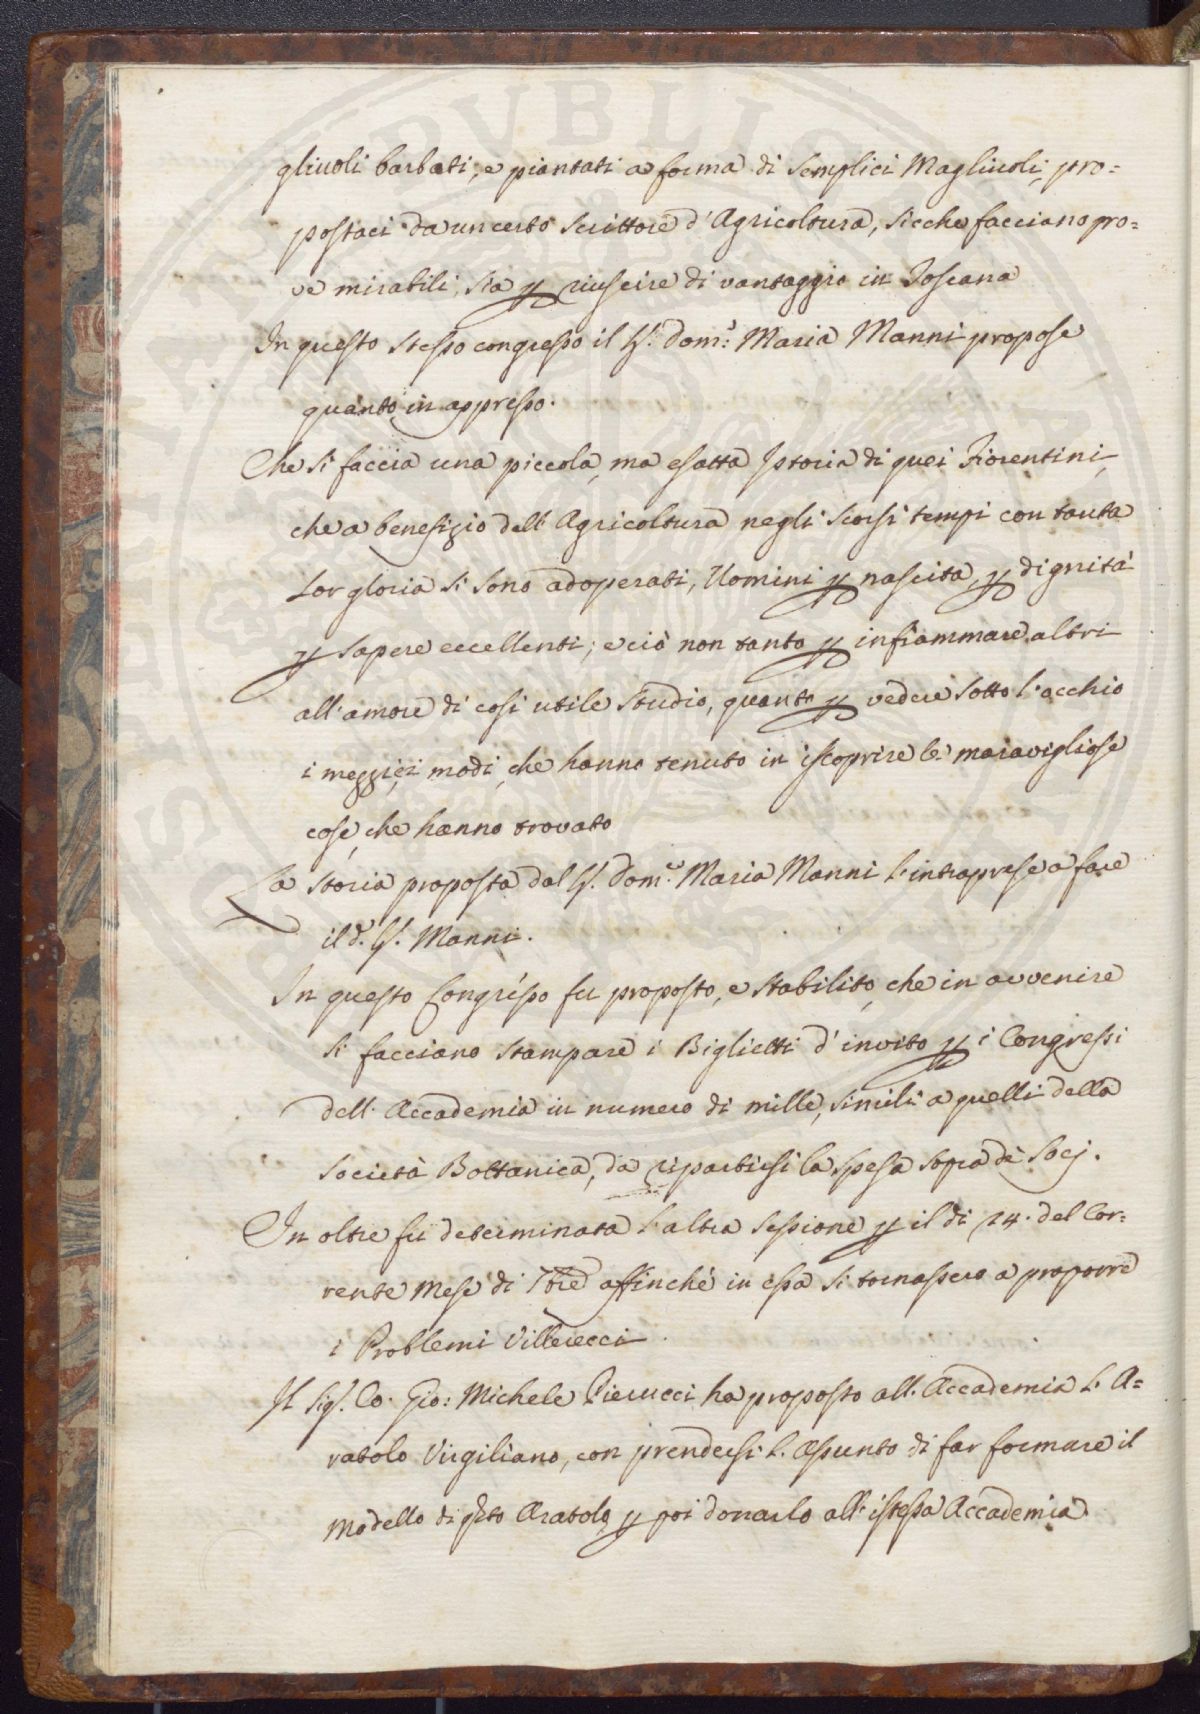 gliuoli barbati, e piantati a forma di semplici Magliuoli, pro=
postaci da un certo Scrittore d'Agricoltura, sicche facciano pro=
ve mirabili, sia p riuscire di vantaggio in Toscana
In questo stesso congresso il Sr. Dom.co Maria Manni propose
quanto in appresso.
Che si faccia una piccola, ma esatta Istoria di quei Fiorentini,
che a benefizio dell'Agricoltura negli scorsi tempi con tanta
lor gloria si sono adoperati, Uomini p nascita, p dignità
p sapere eccellenti; e ciò non tanto p infiammare altri
all'amore di così utile studio, quanto p vedere sotto l'occhio
i meggi, ei modi, che hanno tenuto in iscoprire le maravigliose
cose, che hanno trovato
La storia proposta dal Sr. Dom.co Maria Manni l'intraprese a fare
il d.o Sr. Manni.
In questo Congresso fu proposto, e stabilito, che in avvenire
si facciano stampare i Biglietti d'invito p i Congressi
dell'Accademia in numero di mille, simili a quelli della
Società Bottanica, da ripartirsi la spesa sopra di Socj.
In oltre fu determinata l'altra sessione p il di 24. del Cor=
rente Mese di 7bre affinché in essa si tornassero a proporre
i Problemi Villerecci.
Il Sigr. Co. Gio: Michele Pierucci ha proposto all'Accademia l'A=
ratolo Virgiliano, con prendersi l'assunto di far formare il
modello di qsto Aratolo p poi donarlo all'istessa Accademia